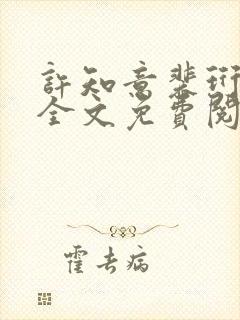 許知意裴珩
全文免費閱
霍去病